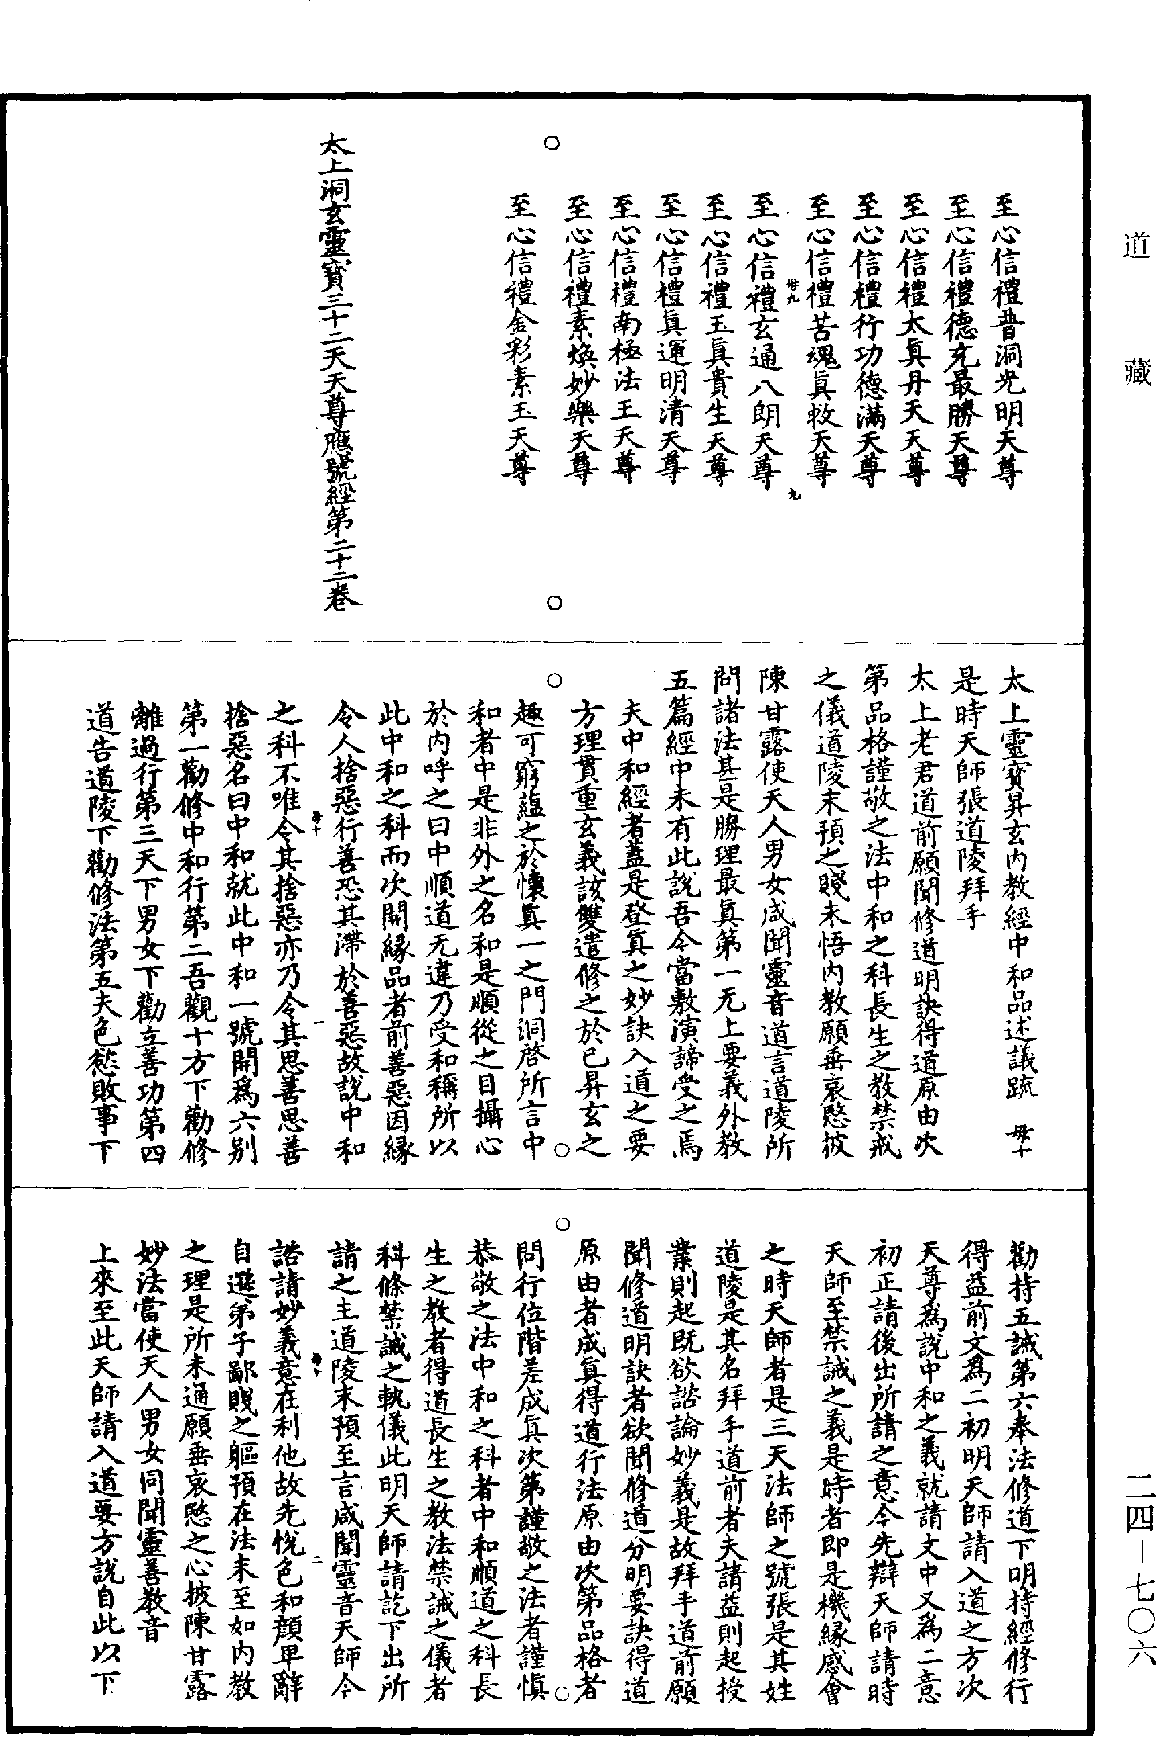 道藏
至心信禮普洞光明天尊
至心信禮德充最勝天尊
至心信禮太眞丹天天尊
至心信禮行功德滿天尊
至心信禮苦魂眞救天尊
至心信禮玄通八朗天尊
至心信禮玉眞貴生天尊
至心信禮眞運明清天尊
至心信禮南極法王天尊
至心信禮素煥妙樂天尊
至心信禮金彩素玉天尊
太上洞玄靈寶三十二天天尊應號經第二十二卷
太上靈寶昇玄內教經中和品述議疏
是時天師張道陵拜手
太上老君道前願聞修道明訣得道原由次
第品格謹敬之法中和之科長生之教禁戒
之儀道陵末預之賤未悟內教願垂哀愍披
陳甘露使天人男女咸聞靈音道言道陵所
問諸法甚是勝理最眞第一无上要義外教
五篇經中未有此說吾今當敷演諦受之焉
夫中和經者蓋是登眞之妙訣入道之要
方理貫重玄義該雙遣修之於已昇玄之
趣可窮蘊之於懷眞一之門洞啓所言中
和者中是非外之名和是順從之目攝心
於內呼之曰中順道无違乃受和稱所以
此中和之科而次開緣品者前善惡因緣
令人捨惡行善恐其滯於善惡故說中和
之科不唯令其捨惡亦乃令其思善思善
捨惡名曰中和就此中和一號開爲六別
第一勸修中和行第二吾觀十方下勸修
離過行第三天下男女下勸立善功第四
道告道陵下勸修法第五夫色慾敗事下
勸持五誡第六奉法修道下明持經修行
得益前文爲二初明天師請入道之方次
天尊爲說中和之義就請文中又爲二意
初正請後出所請之意今先辯天師請時
天師至禁誡之義是時者即是機緣感會
之時天師者是三天法師之號張是其姓
道陵是其名拜手道前者夫請益則起授
業則起既欲諮論妙義是故拜手道前願
聞修道明訣者欲聞修道分明要訣得道
原由者成眞得道行法原由次第品格者
問行位階差成眞次第謹敬之法者謹愼
恭敬之法中和之科者中和順道之科長
生之教者得道長生之教法禁誡之儀者
科條禁誡之軌儀此明天師請訖下出所
請之主道陵末預至言咸聞靈音天師今
諮請妙義意在利他故先悅色和顏卑辭
自遜弟子鄙賤之軀預在法末至如內教
之理是所未通願垂哀愍之心披陳甘露
妙法當使天人男女同聞靈善教音
上來至此天師請入道要方說自此以下
二四－七〇六